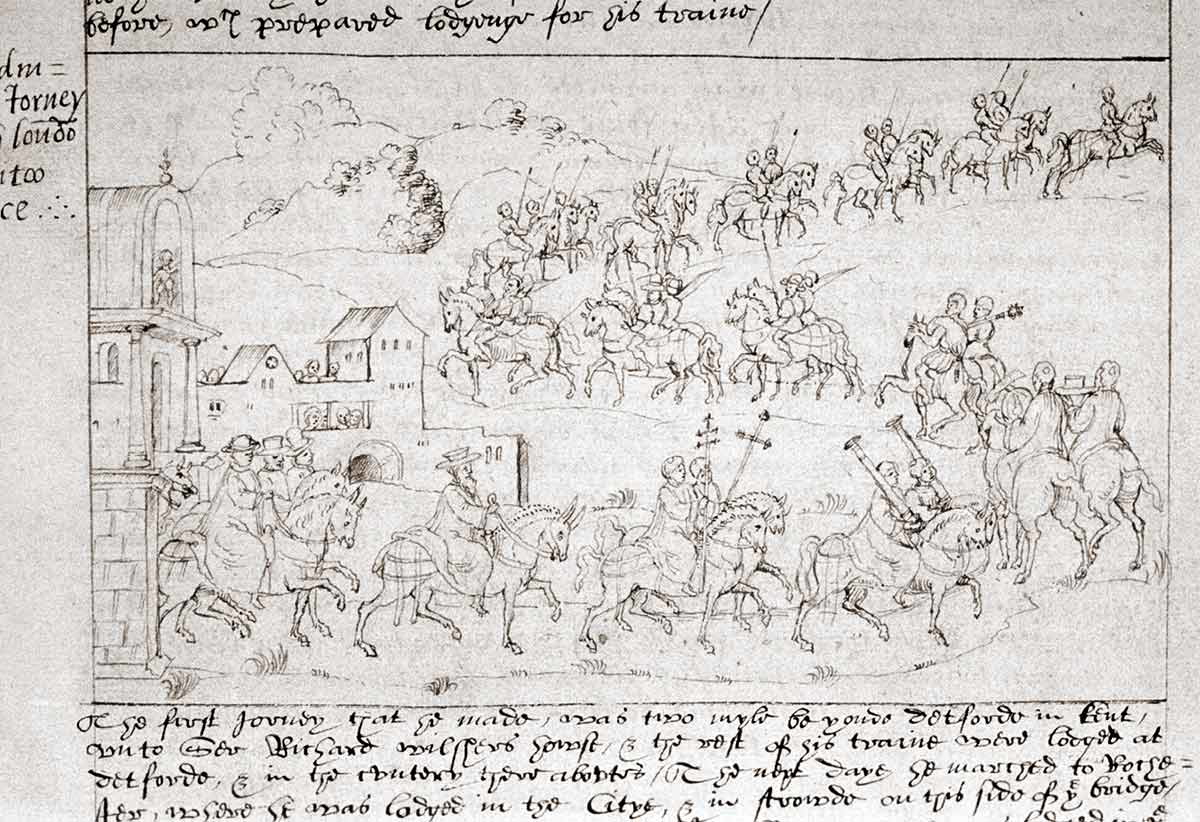 before, wᵗʰ prepared lodgenge for his traine/
Jorney
londō
The first Jorney that he made, was two myle beyonde detforde in kent,
vnto Ser Richard wilshers howse, & the rest of his traine were lodged at
detforde, & in the cuntery there abowtes/ The next daye he marched to Roche=
ster, where he was lodged in the Citye, & in strowde on this side of yᵉ bridge/